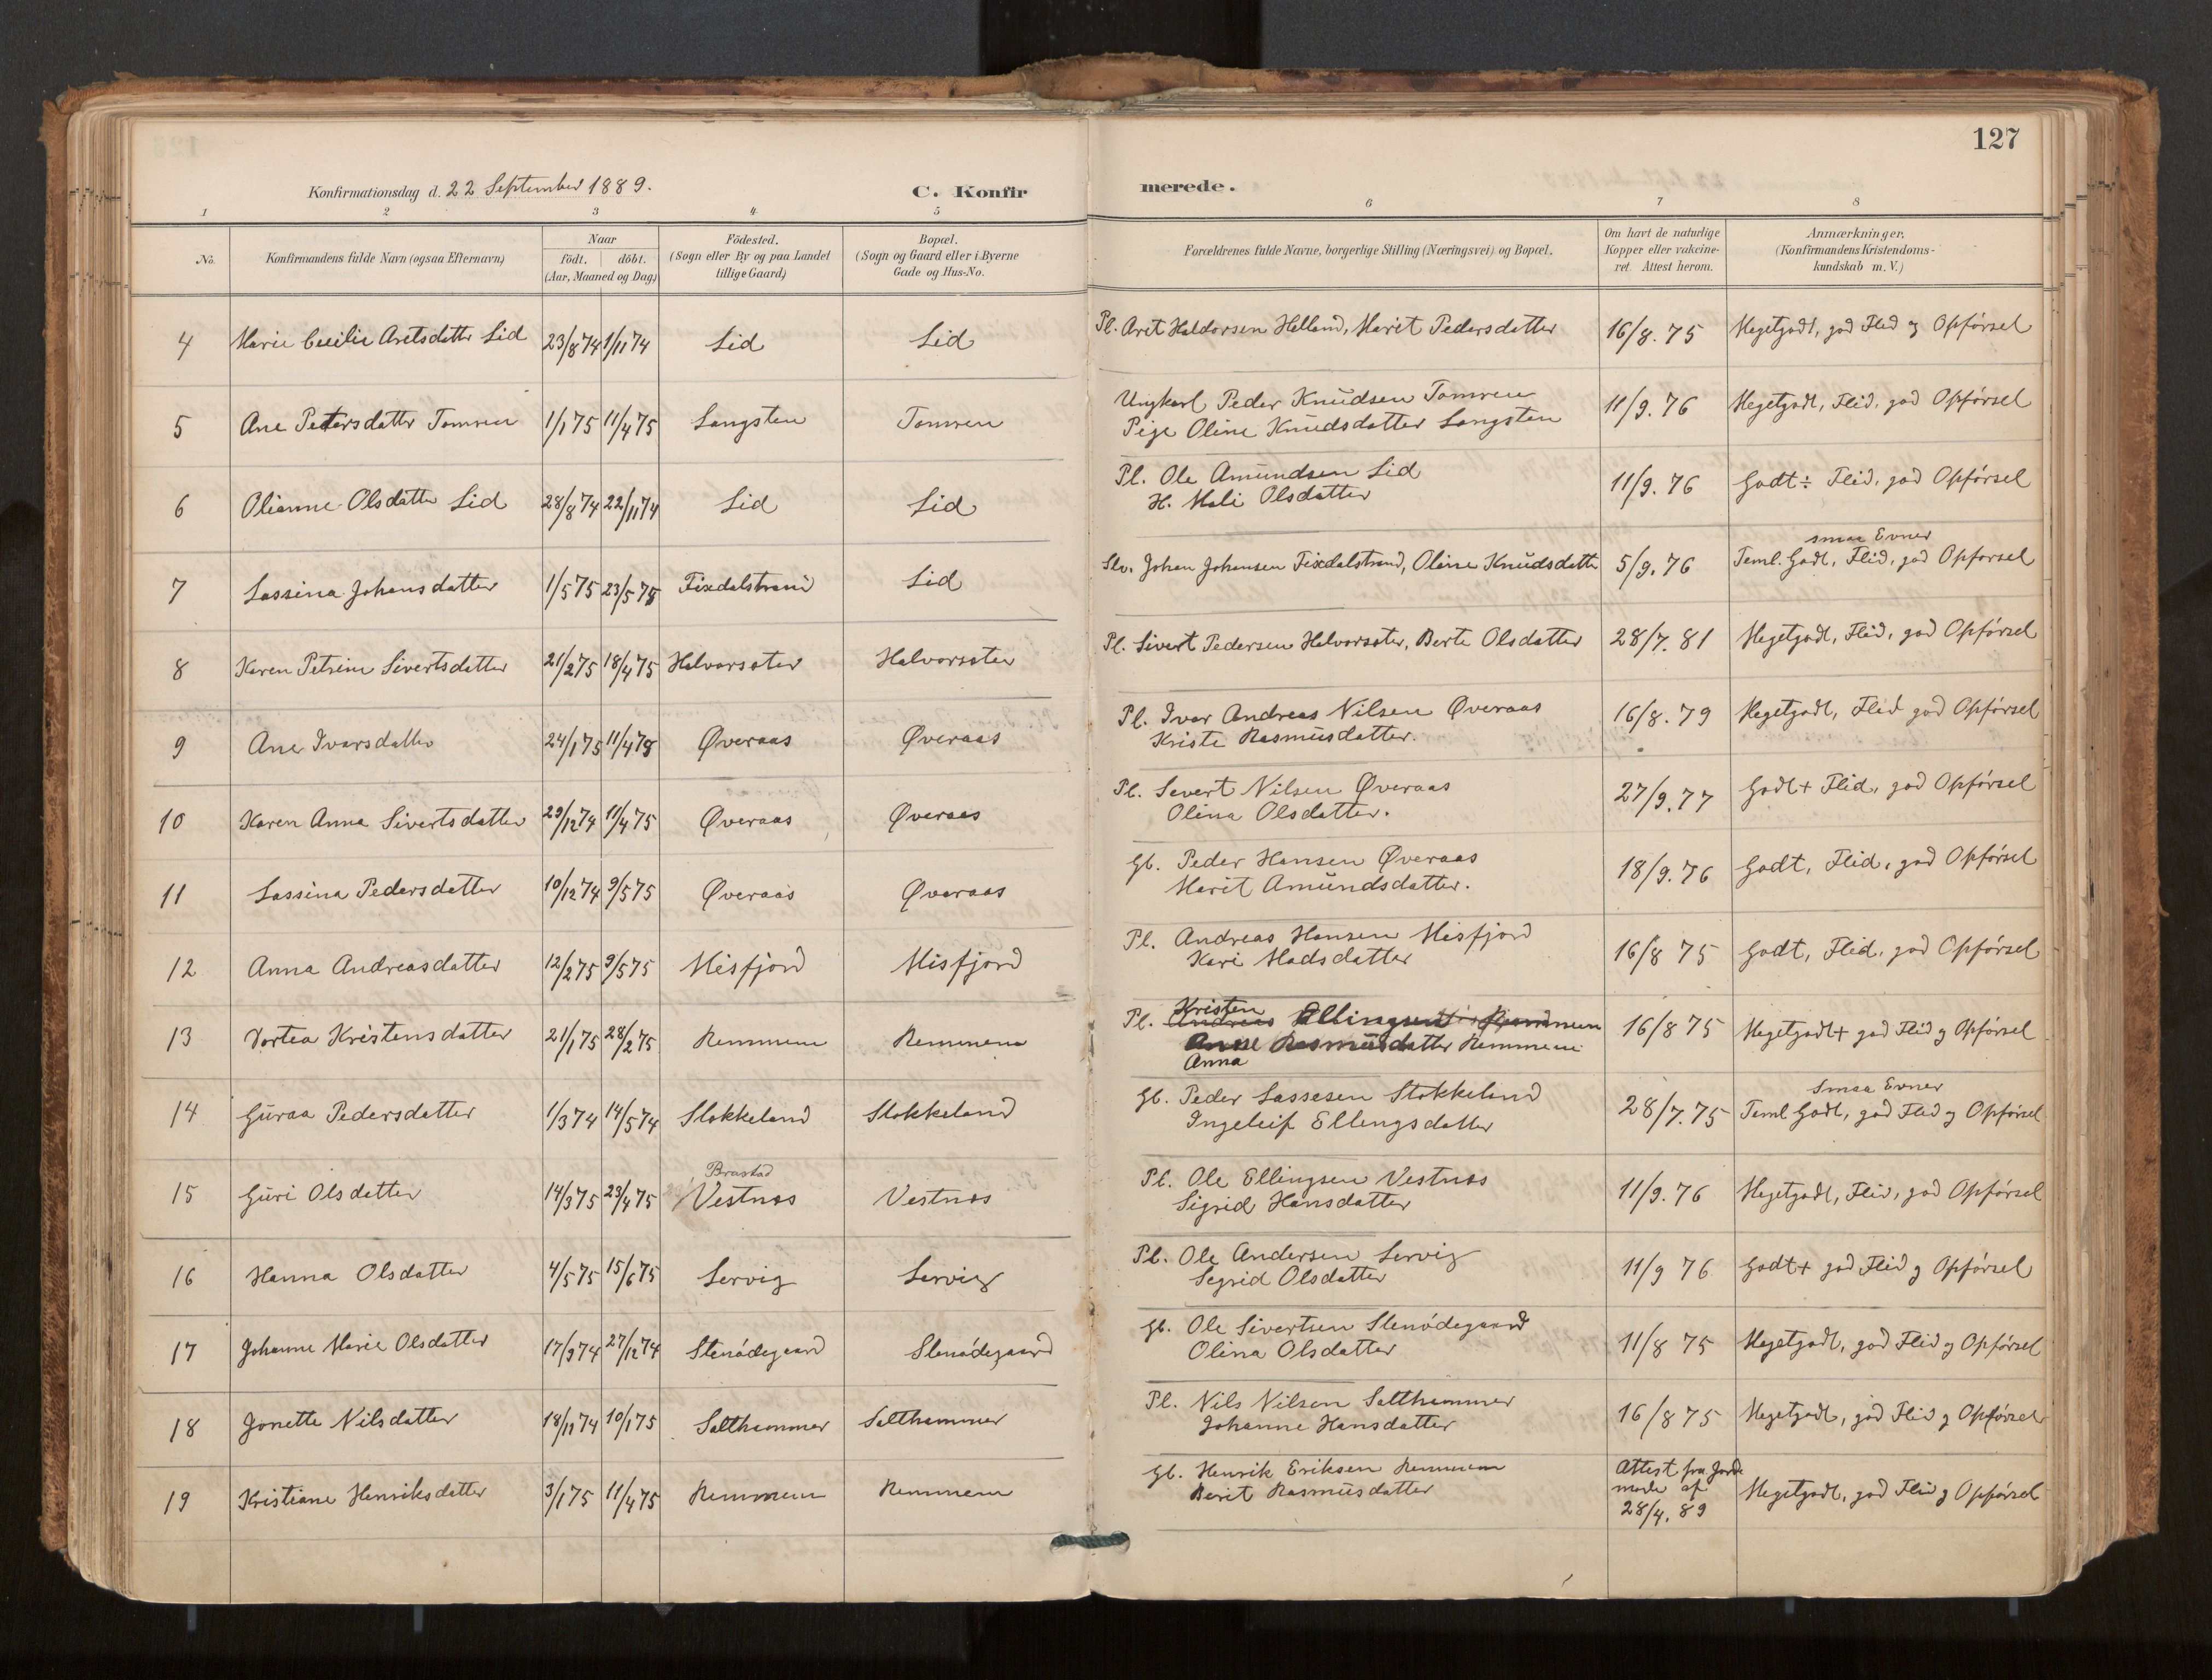 127
Konfirmationsdag d. 22 September 1889.
C. Konfirmerede.
1 2 3 4 5 6 7 8
No. Konfirmandens fulde Navn (ogsaa Efternavn) Naar födt. döbt. (Aar, Maaned og Dag) Födested. (Sogn eller By og paa Landet tillige Gaard) Bopæl. (Sogn og Gaard eller i Byerne Gade og Hus-No. Forældrenes fulde Navne, borgerlige Stilling (Næringsvei) og Bopæl. Om havt de naturlige Kopper eller vakcineret. Attest herom. Anmærkninger. (Konfirmandens Kristendomskundskab m. V.)
4 Marie Cecilie Aretsdatter Lid 23/8 74 1/11 74 Lid Lid Pl. Aret Haldorsen Helland, Marit Pedersdatter 16/8. 75 Megetgodt, god Flid og Opförsel
5 Ane Petersdattr Tomren 1/1 75 11/4 75 Langsten Tomren Ungkarl Peder Knudsen Tomren
Pige Oline Knudsdatter Langsten 11/9. 76 Megetgodt, Flid, god Opförsel
6 Olianne Olsdatter Lid 28/8 74 22/11 74 Lid Lid Pl. Ole Amundsen Lid
H. Mali Olsdatter 11/9. 76 Godt ÷ Flid, god Opförsel
7 Lassina Johansdatter 1/5 75 23/5 75 Fixdalstrand Lid Slv. Johan Johansen Fixdalstrand, Oline Knudsdatter 5/9. 76 smaa Evner
Teml. Godt, Flid, god Opförsel
8 Karen Petrine Sivertsdatter 21/2 75 18/4 75 Halvorsøter Halvorsøter Pl. Sivert Pedersen Halvorsøter, Berte Olsdatter 28/7. 81 Megetgodt, Flid, god Opförsel
9 Ane Ivarsdatter 24/1 75 11/4 75 Øveraas Øveraas Pl. Ivar Andreas Nilsen Øveraas
Kriste Rasmusdatter. 16/8. 79 Megetgodt, Flid god Opförsel
10 Karen Anna Sivertsdatter 29/12 74 11/4 75 Øveraas Øveraas Pl. Severt Nilsen Øveraas
Olina Olsdatter. 27/9. 77 Godt + Flid, god Opförsel
11 Lassina Pedersdatter 10/12 74 9/5 75 Øveraas Øveraas Gb. Peder Hansen Øveraas
Marit Amundsdatter. 18/9. 76 Godt, Flid, god Opförsel
12 Anna Andreasdatter 12/2 75 9/5 75 Misfjord Misfjord Pl. Andreas Hansen Misfjord
Kari Madsdatter 16/8 75 Godt, Flid, god Opförsel
13 Dortea Kristensdatter 21/1 75 28/2 75 Remmem Remmem Kristen
Pl. Andreas Ellingsen
Rasmusdatter Remmem
Anna 16/8 75 Megetgodt + god Flid og Opförsel
14 Guraa Pedersdatter 1/3 74 14/5 74 Stokkeland Stokkeland Gb. Peder Lassesen Stokkeland
Ingeleif Ellengsdatter 28/7. 75 Smaa Evner
Teml. Godt, god Flid og Opförsel
15 Guri Olsdatter 14/3 75 23/4 75 Brastad
Vestnøs Vestnøs Pl. Ole Ellingsen Vestnøs
Sigrid Hansdatter 11/9. 76 Megetgodt, Flid, god Opförsel
16 Hanna Olsdatter 4/5 75 15/6 75 Lervig Lervig Pl. Ole Andersen Lervig
Segrid Olsdatter 11/9 76 Godt + god Flid og Opförsel
17 Johanne Marie Olsdatter 17/9 74 27/12 74 Stenödegaard Stenödegaard Gb. Ole Sivertsen Stenödegaard
Olina Olsdatter 11/8 75 Megetgodt, god Flid og Opförsel
18 Jonette Nilsdatter 18/11 74 10/1 75 Salthammer Salthammer Pl. Nils Nilsen Salthammer
Johanne Hansdatter 16/8 75 Megetgodt, god Flid og Opförsel
19 Kristiane Henriksdatter 3/1 75 11/4 75 Remmem Remmem Gb. Henrik Eriksen Remmem
Berit Rasmusdatter Attest fra Jorde
moder af
28/4. 89 Megetgodt, god Flid og Opförsel